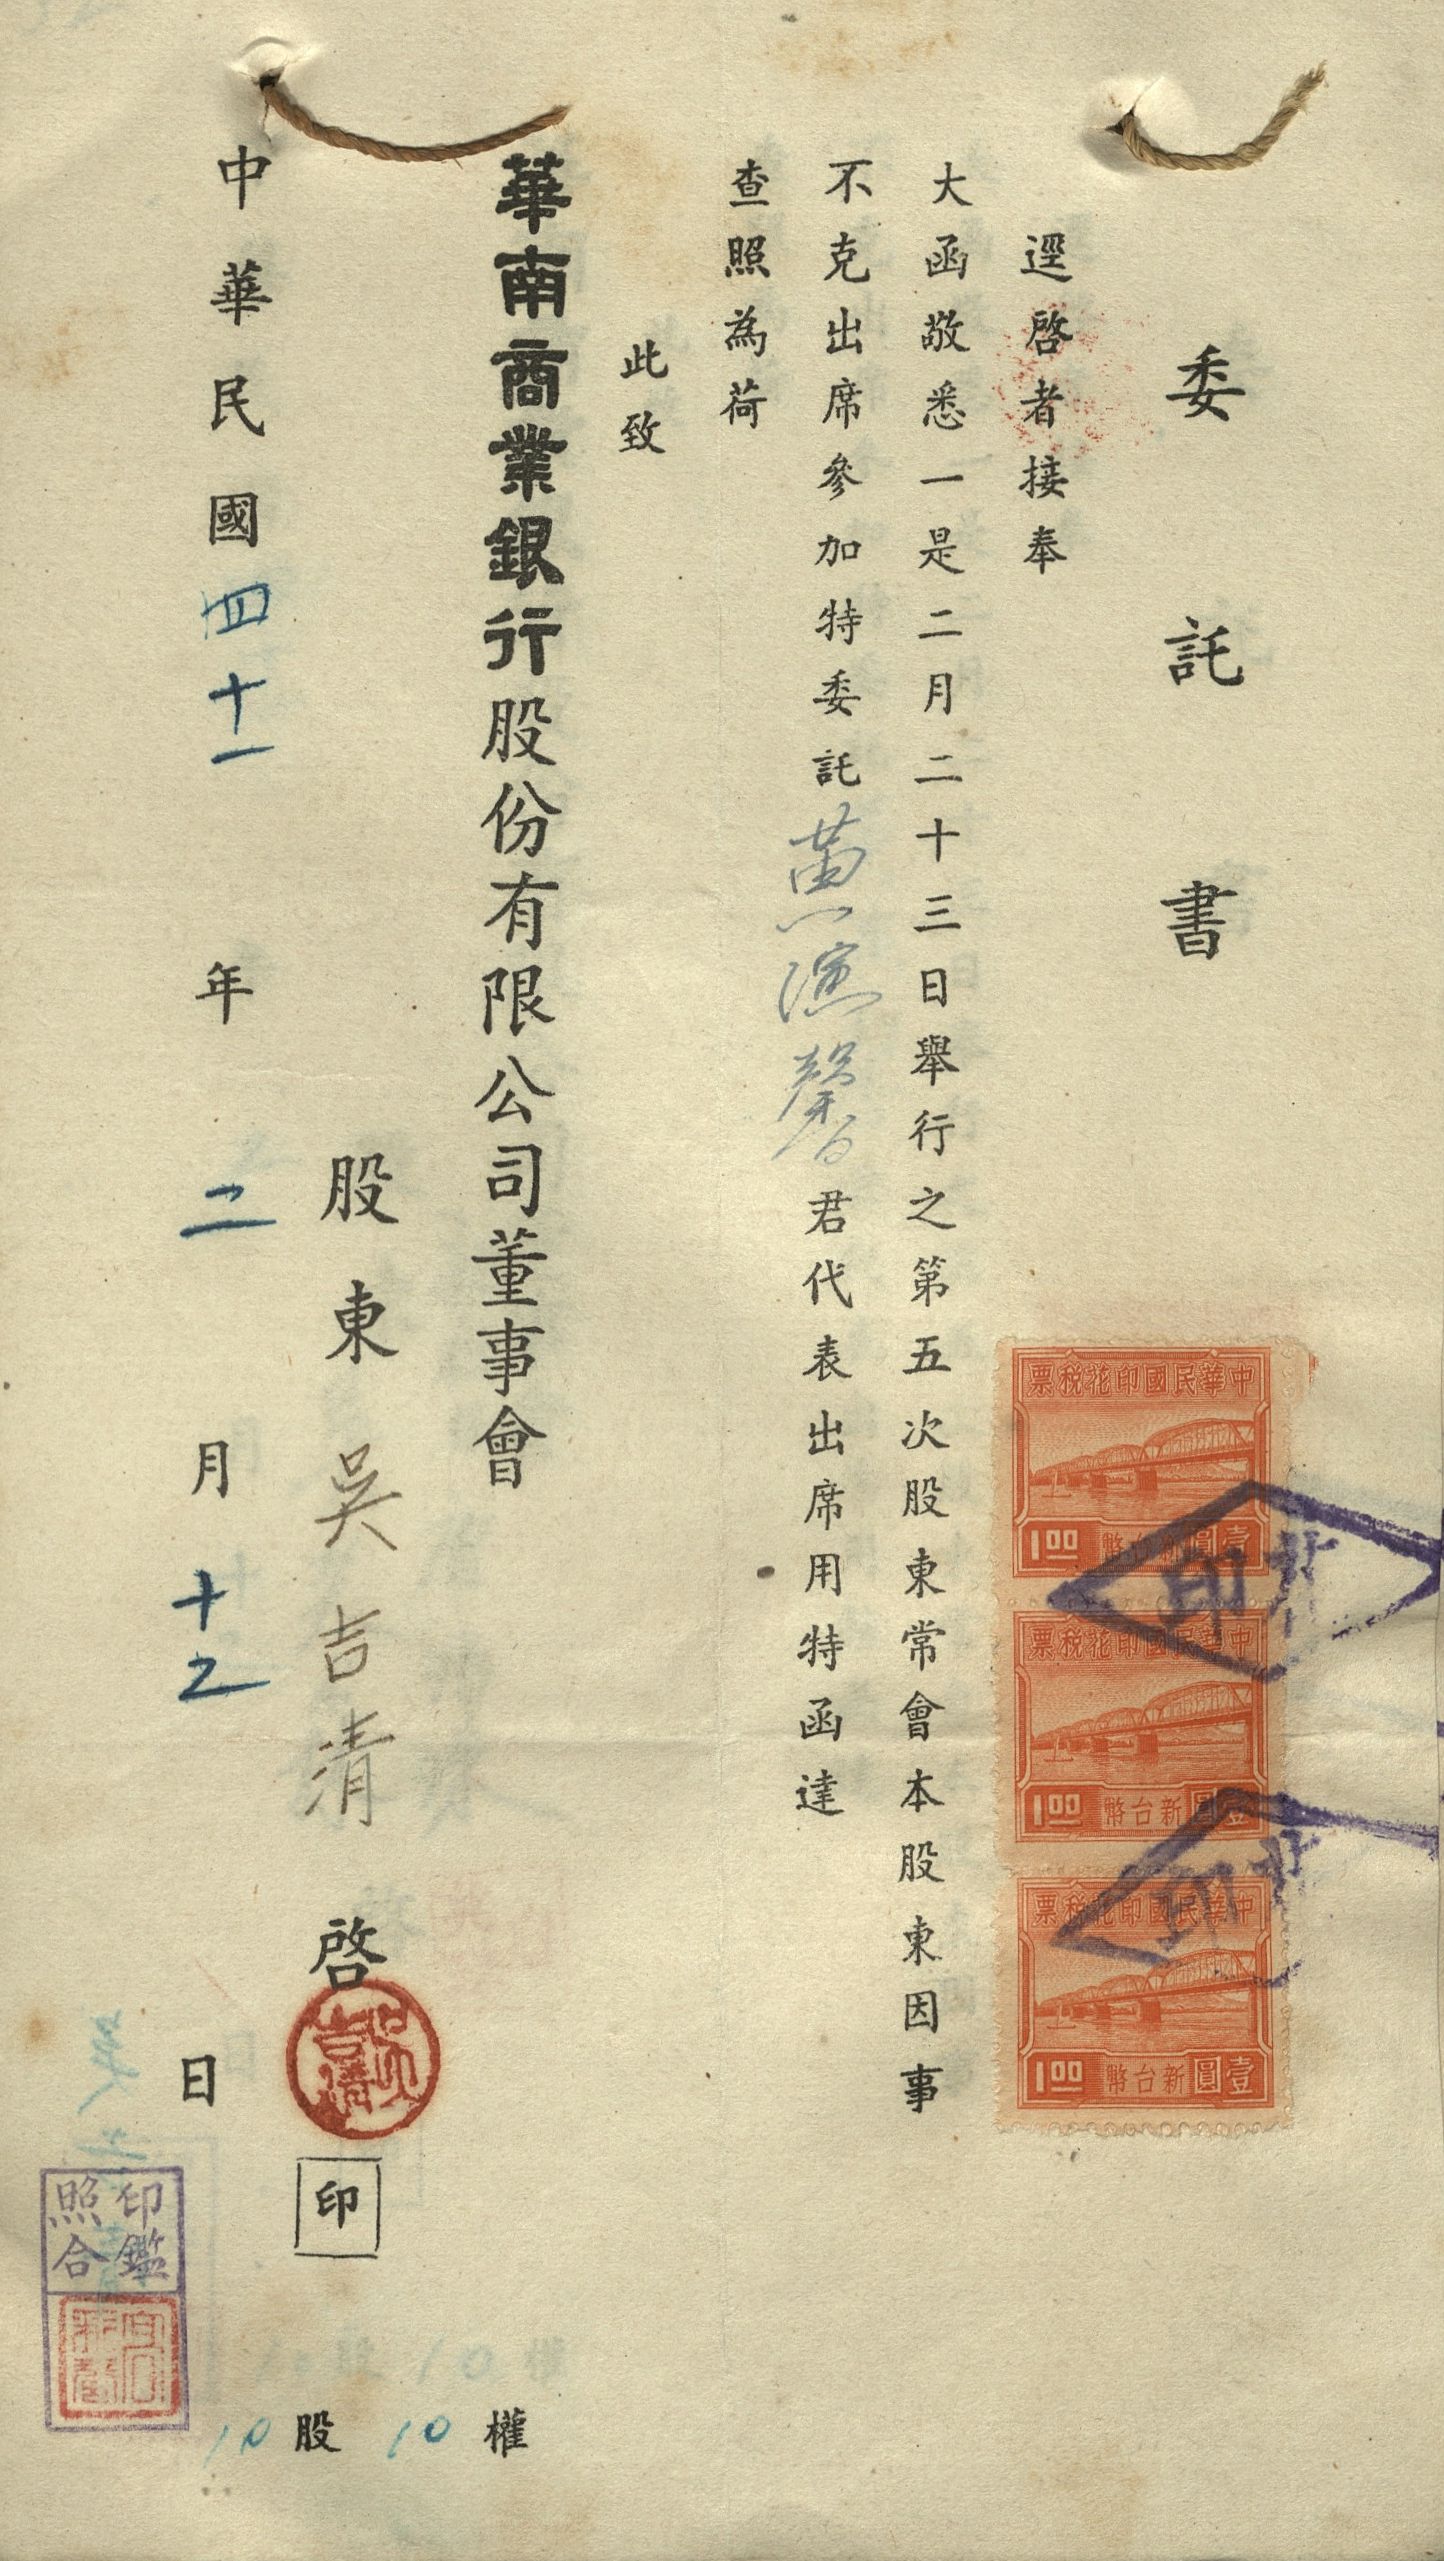 委託書
逕啓者接奉
大函敬悉一是二月二十三日舉行之第五次股東常會本股東因事
不克出席參加特委託黃演馨君代表出席用特函達
查照為荷
此致
華南商業銀行股份有限公司董事會
股東吳吉清啓
印
中華民國四十一年二月十二日
10股10權
中華民國印花稅票
1.00 新台幣壹圓
中華民國印花稅票
1.00 新台幣壹圓
中華民國印花稅票
1.00 新台幣壹圓
北
印
北
印
吳吉清
印鑑
照合